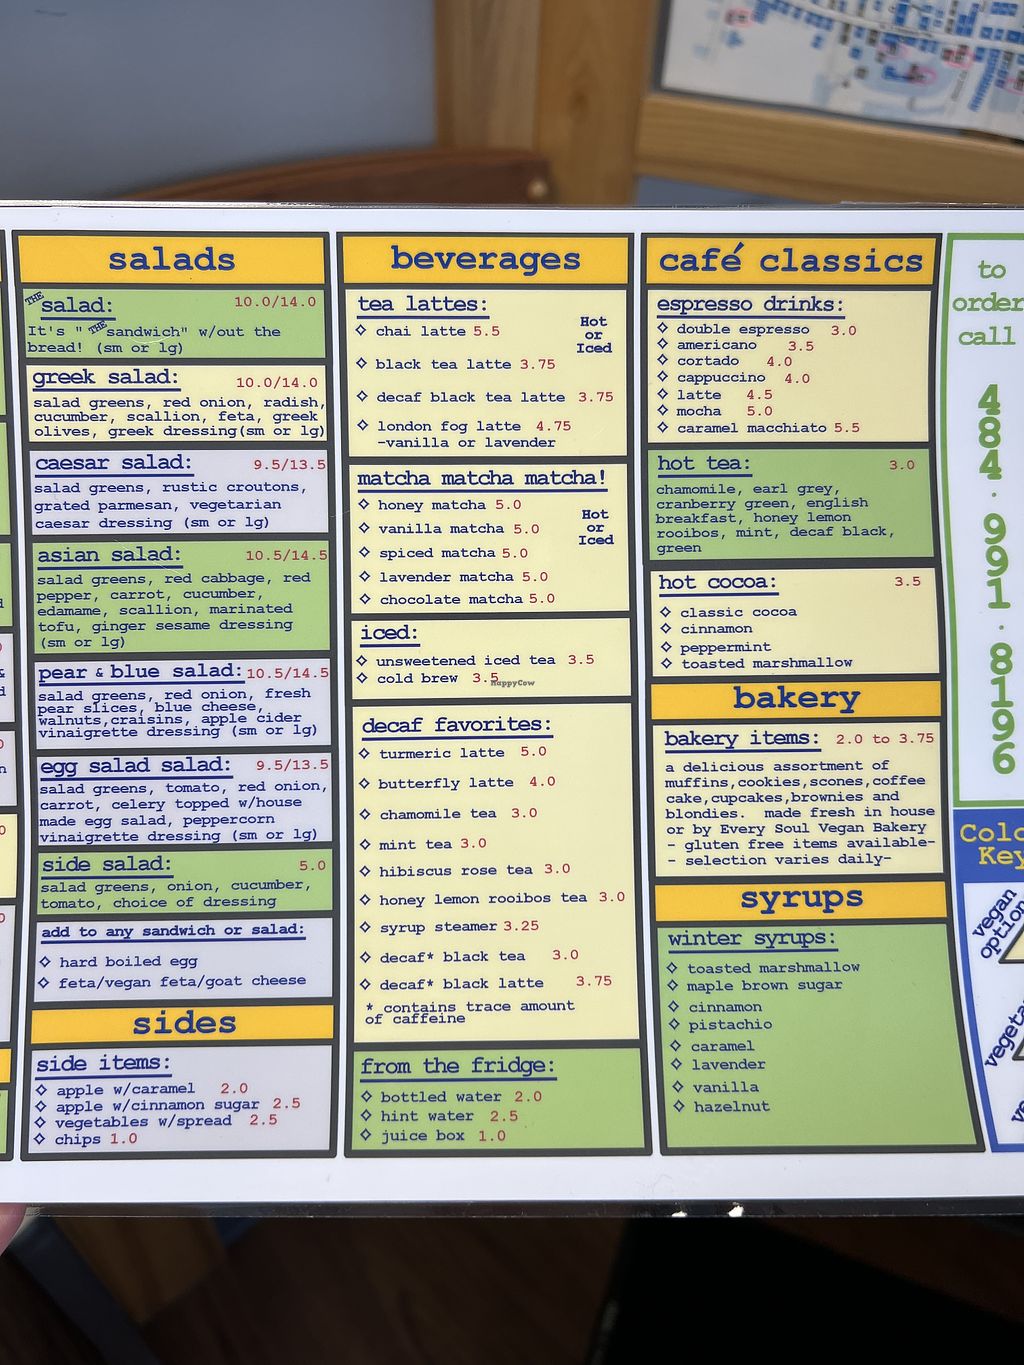 salads
THE salad: 10.0/14.0
It's "THE sandwich" w/out the
bread! (sm or lg)
greek salad: 10.0/14.0
salad greens, red onion, radish,
cucumber, scallion, feta, greek
olives, greek dressing(sm or lg)
caesar salad: 9.5/13.5
salad greens, rustic croutons,
grated parmesan, vegetarian
caesar dressing (sm or lg)
asian salad: 10.5/14.5
salad greens, red cabbage, red
pepper, carrot, cucumber,
edamame, scallion, marinated
tofu, ginger sesame dressing
(sm or lg)
pear & blue salad: 10.5/14.5
salad greens, red onion, fresh
pear slices, blue cheese,
walnuts,craisins, apple cider
vinaigrette dressing (sm or lg)
egg salad salad: 9.5/13.5
salad greens, tomato, red onion,
carrot, celery topped w/house
made egg salad, peppercorn
vinaigrette dressing (sm or lg)
side salad: 5.0
salad greens, onion, cucumber,
tomato, choice of dressing
add to any sandwich or salad:
◇ hard boiled egg
◇ feta/vegan feta/goat cheese
sides
side items:
◇ apple w/caramel 2.0
◇ apple w/cinnamon sugar 2.5
◇ vegetables w/spread 2.5
◇ chips 1.0
beverages
tea lattes:
Hot
or
Iced
◇ chai latte 5.5
◇ black tea latte 3.75
◇ decaf black tea latte 3.75
◇ london fog latte 4.75
-vanilla or lavender
matcha matcha matcha!
Hot
or
Iced
◇ honey matcha 5.0
◇ vanilla matcha 5.0
◇ spiced matcha 5.0
◇ lavender matcha 5.0
◇ chocolate matcha 5.0
iced:
◇ unsweetened iced tea 3.5
◇ cold brew 3.5
HappyCow
decaf favorites:
◇ turmeric latte 5.0
◇ butterfly latte 4.0
◇ chamomile tea 3.0
◇ mint tea 3.0
◇ hibiscus rose tea 3.0
◇ honey lemon rooibos tea 3.0
◇ syrup steamer 3.25
◇ decaf* black tea 3.0
◇ decaf* black latte 3.75
* contains trace amount
of caffeine
from the fridge:
◇ bottled water 2.0
◇ hint water 2.5
◇ juice box 1.0
café classics
espresso drinks:
◇ double espresso 3.0
◇ americano 3.5
◇ cortado 4.0
◇ cappuccino 4.0
◇ latte 4.5
◇ mocha 5.0
◇ caramel macchiato 5.5
hot tea: 3.0
chamomile, earl grey,
cranberry green, english
breakfast, honey lemon
rooibos, mint, decaf black,
green
hot cocoa: 3.5
◇ classic cocoa
◇ cinnamon
◇ peppermint
◇ toasted marshmallow
bakery
bakery items: 2.0 to 3.75
a delicious assortment of
muffins,cookies,scones,coffee
cake,cupcakes,brownies and
blondies. made fresh in house
or by Every Soul Vegan Bakery
- gluten free items available-
- selection varies daily-
syrups
winter syrups:
◇ toasted marshmallow
◇ maple brown sugar
◇ cinnamon
◇ pistachio
◇ caramel
◇ lavender
◇ vanilla
◇ hazelnut
to
order
call
484.991.8196
Key
vegan
option